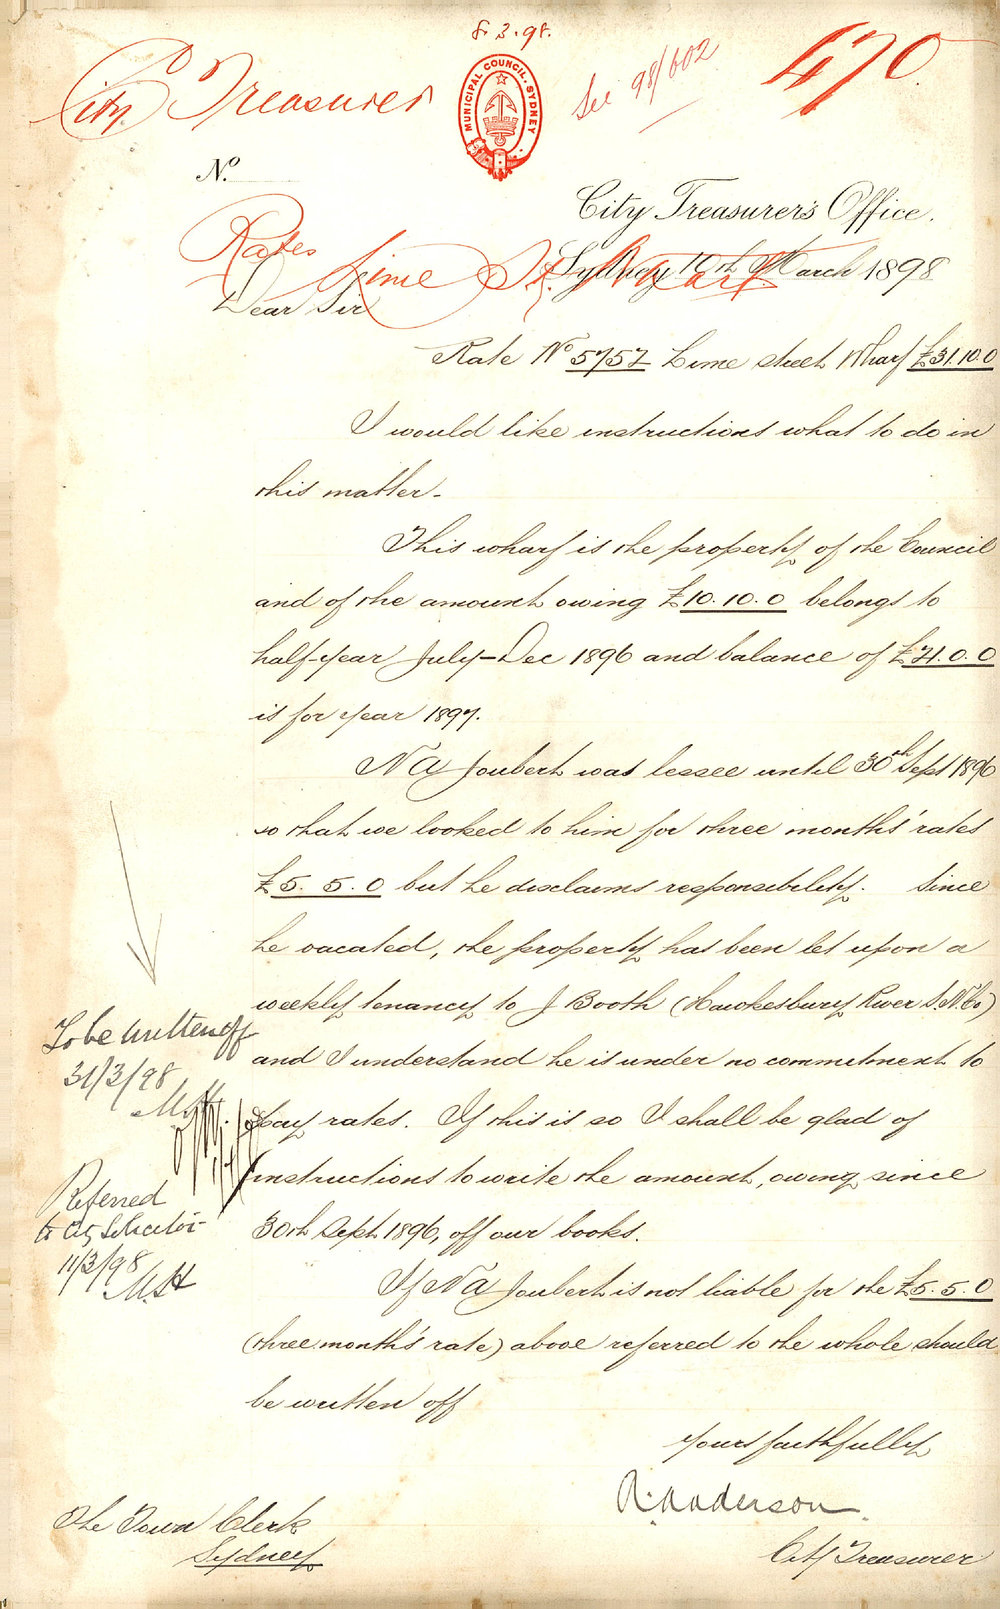 8.3.98.
City Treasurer
MUNICIPAL COUNCIL. SYDNEY
See 98/602
470
No.
City Treasurer's Office.
Rates
Lime St Wharf
Sydney 10th March 1898
Dear Sir
Rate No 5757 Lime street Wharf £31.10.0
I would like instructions what to do in
this matter.
This wharf is the property of the Council
and of the amount owing £10.10.0 belongs to
half-year July-Dec 1896 and balance of £21.0.0
is for year 1897.
N A Joubert was lessee until 30th Sept 1896
so that we looked to him for three months' rates
£5. 5. 0 but he disclaims responsibility. Since
he vacated, the property has been let upon a
weekly tenancy to J Booth (Hawkesbury River S.N.Co)
and I understand he is under no commitment to
pay rates. If this is so I shall be glad of
instructions to write the amount, owing since
30th Sept 1896, off our books.
If N A Joubert is not liable for the £5.5.0
(three month's rate) above referred to the whole should
be written off
Yours faithfully
R. Anderson.
City Treasurer
The Town Clerk
Sydney
To be written off
31/3/98
Referred
to City Solicitor
11/3/98